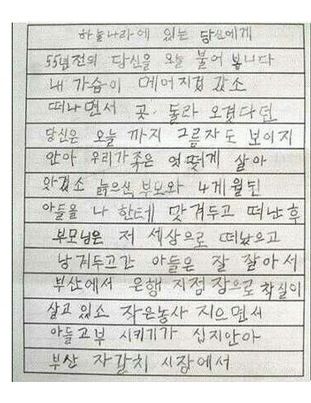 하늘나라에 있는 당신에게
55년전의 당신을 오늘 불어 봅니다
내 가슴이 메어지겄 갔소
떠나면서 곳. 둘라 오겄다던
당신은 오늘 까지 그름자도 보이지
안아 우리가족은 엇떻게 살아
왔겄소 늙으신 부모와 4개월된
아들을 나 한테 맞겨두고 떠난후
부모님은 저 세상으로 떠났으고
남겨두고간 아들은 잘 잘아서
부산에서 은행 지점장으로 착실이
살고 있소 작은농사 지으면서
아들고부 시키기가 십지안아
부산 자갈치 시장에서